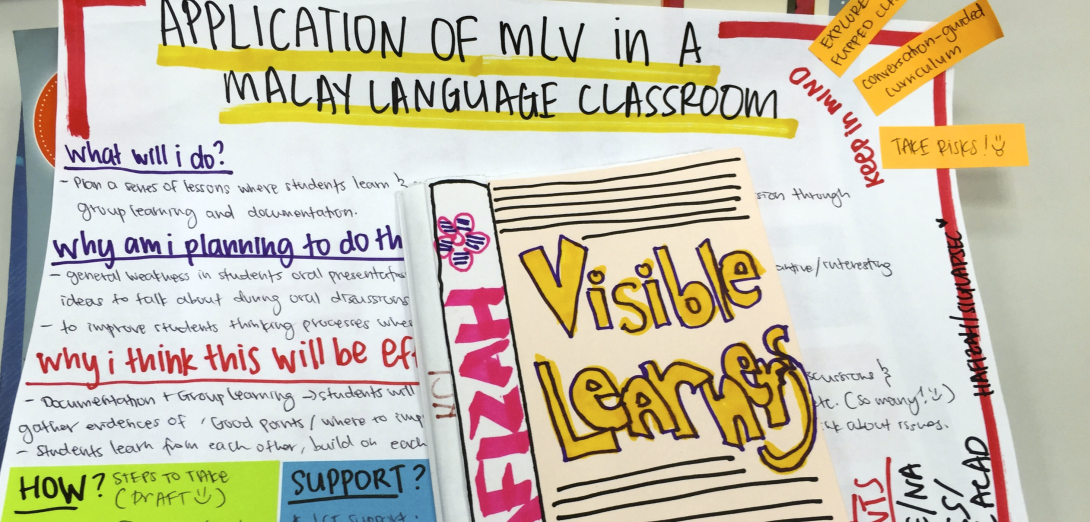 APPLICATION OF MLV in A
MALAY LANGUAGE CLASSROOM
EXPLORE
FLIPPED
conversation-guided
curriculum
TAKE RISKS!
Keep in MIND
What will i do?
- Plan a series of lessons where students learn
through
group learning and documentation.
why am i planning to do th
- general weakness in students oral presentation
/interesting
ideas to talk about during oral discussions
- to improve students thinking processes
why i think this will be ef
- Documentation + Group learning → students will
gather evidences of 'Good points / where to imp
etc. (so many!)
- Students learn from each other, build on each
about issues.
HOW? STEPS TO TAKE
(DRAFT)
SUPPORT?
Visible
Learners
FIZAH
NTS
/NA
ACAD